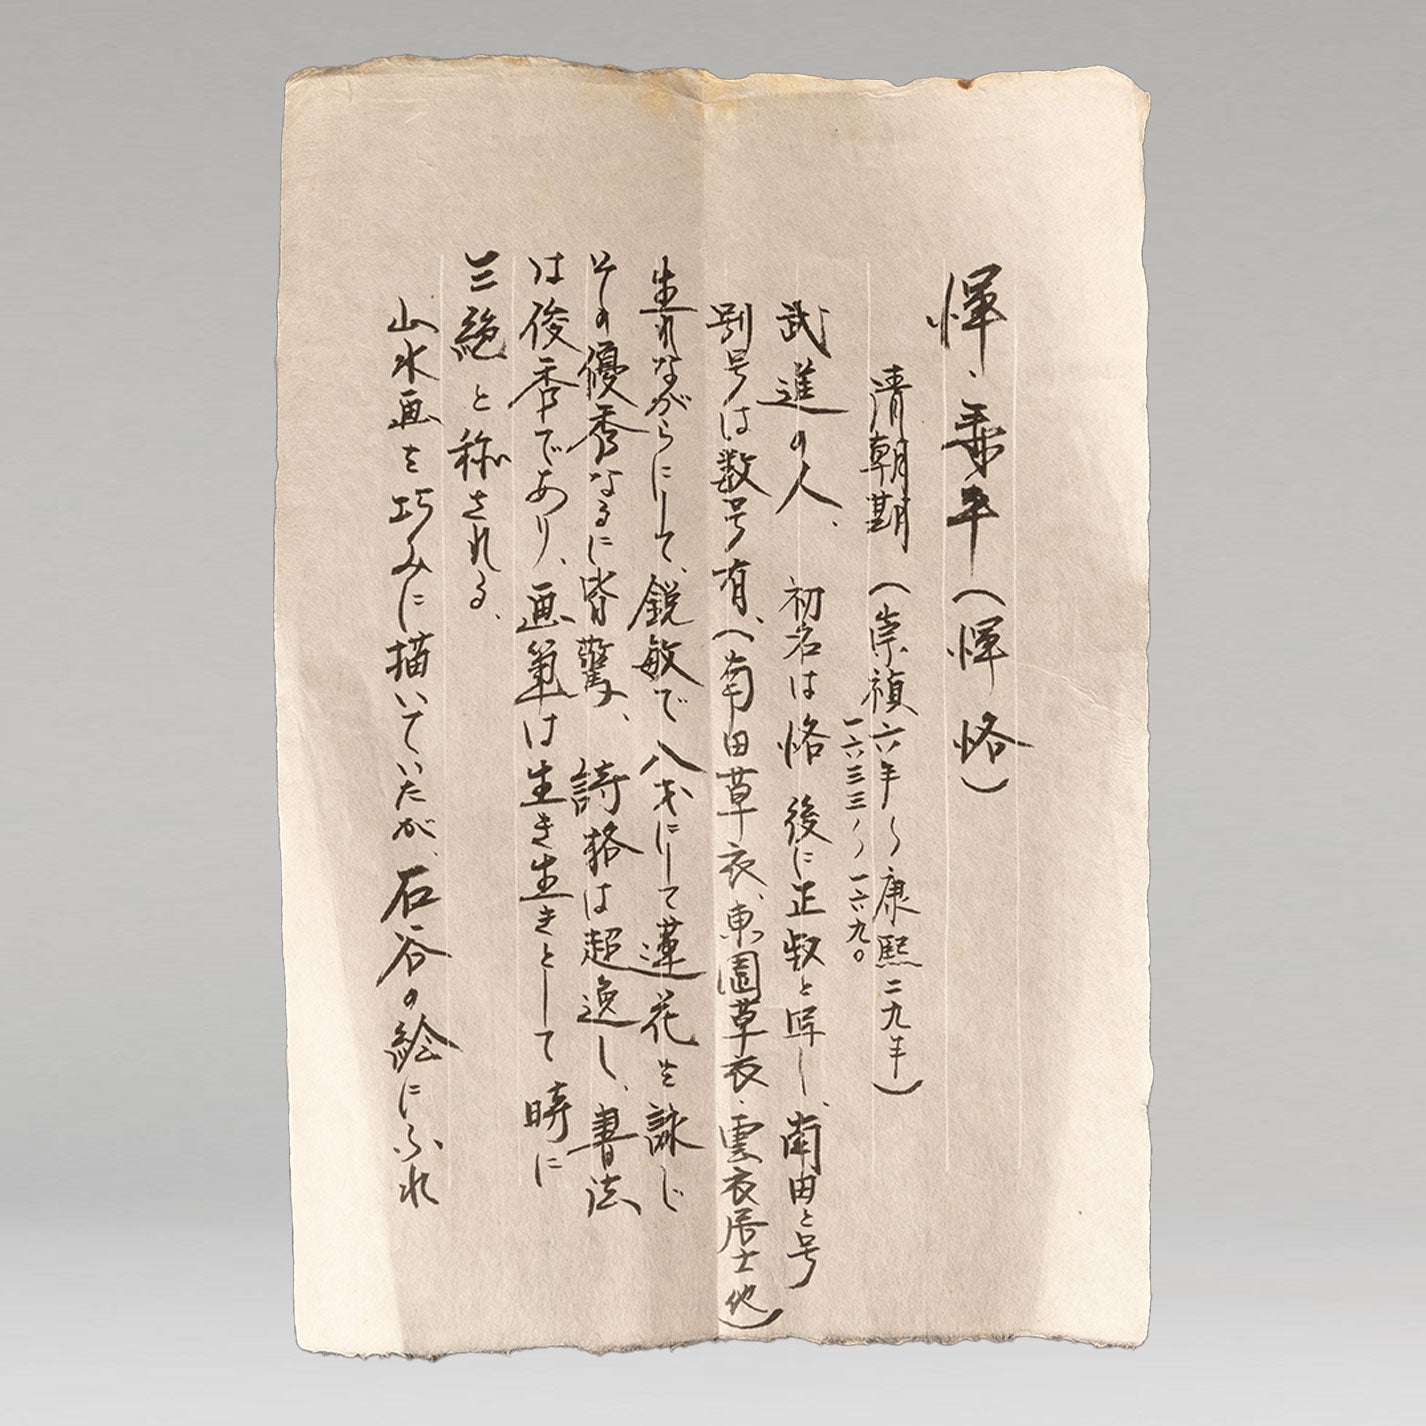 惲・壽平（惲恪）
清朝期（崇禎六年〜康熙二九年）
一六三三〜一六九〇
武進の人、初名は恪後に正叔と㝍し、南田と号
別号は数号有、（南田草衣、東園草衣、雲衣居士他）
生れながらにして、鋭敏で八才にして蓮花を詠じ
その優秀なるに皆驚、詩格は超逸し、書法
は俊秀であり、画筆は生き生きとして時に
三絶と称される、
山水画を巧みに描いていたが、石谷の絵にふれ